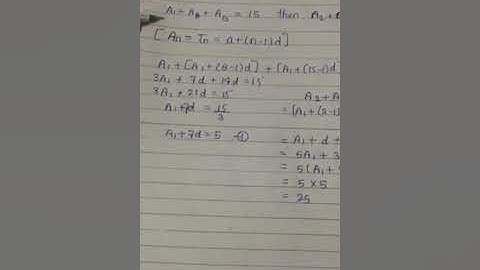 A₁ + A₈ + A₁₅ = 15 then A₂ +
[An = Tn = a + (n-1)d]
A₁ + [A₁ + (8-1)d] + [A₁ + (15-1)d]
3A₁ + 7d + 14d = 15
3A₁ + 21d = 15
A₁ + 7d = 15/3
A₁ + 7d = 5 -①
A₂ + A
= (A₁ + (2-1)
= A₁ + d +
= 5A₁ + 3
= 5(A₁ +
= 5 × 5
= 25